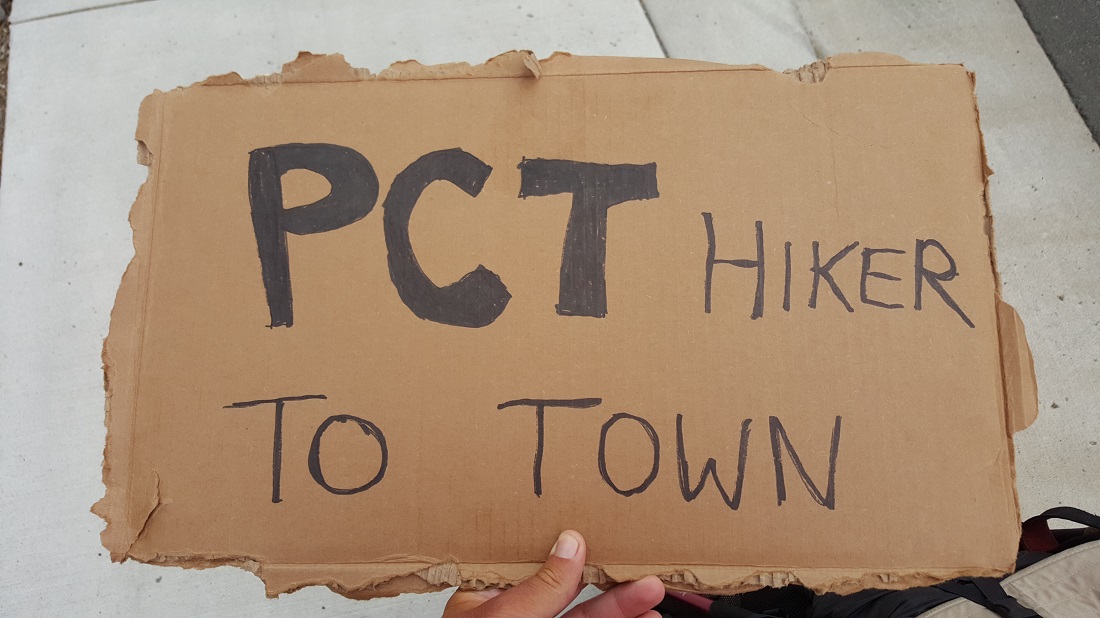 PCT HIKER
TO T TOWN